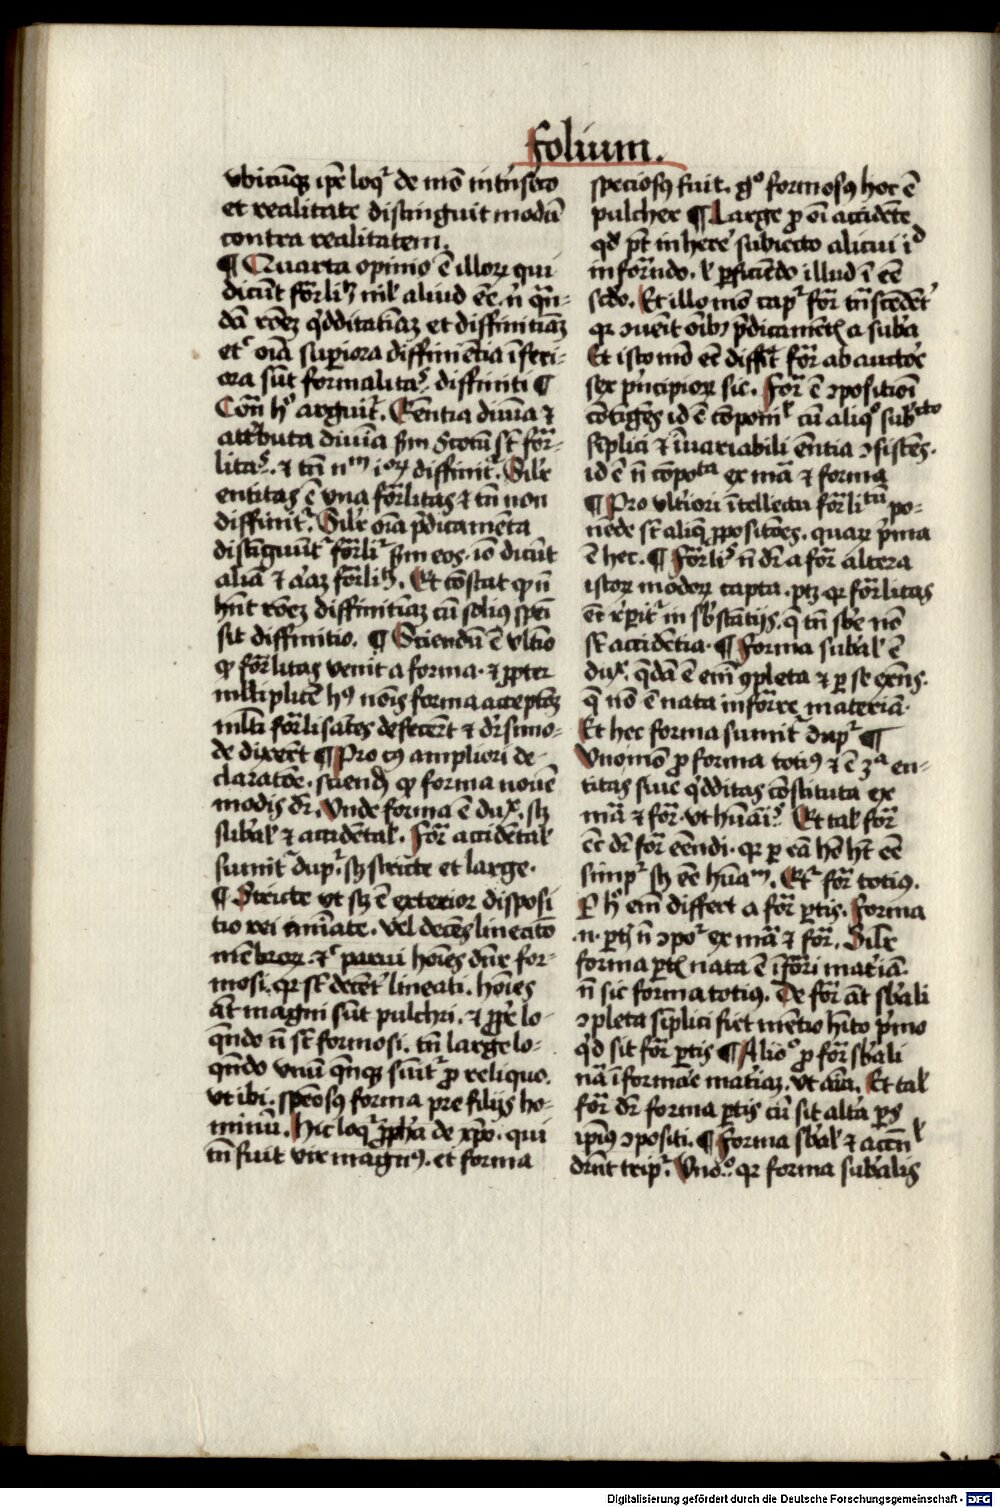 folium.
vbicūqꝫ ip̄e loqͬ de mō intrīseco
et realitate distinguit modū
contra realitatem.
¶ Quarta opinio ē illoꝝ qui
dicūt for̄liᵇꝫ nil aliud eē. n̄ qn̄-
dā rōeꝫ qͥdditatiuaꝫ et diffinitiuāꝫ
etͨ oīa superiora diffinientia īferi-
ora sūt formalitaˢ. diffiniti ¶
Con̄ hͦ arguitͬ. Eēntia diuīa ⁊
attͥbuta diuīa ẜm scotū sͭ for̄-
litaˢ. ⁊ tn̄ nᵐ ioꝝ diffinitͬ. Silr̄
entitas ē vna for̄litas ⁊ tn̄ non
diffinitͬ. Silr̄ oīa p̄dicamēta
distīguūtͬ for̄lr̄ ẜm eos. iō dicūt
aliā ⁊ aliāꝫ for̄liᵇꝫ. Et cōstat ꝙ n̄
hn̄t rōeꝫ diffinitiuāꝫ cū solius spēi
sit diffinitio. ¶ Sciendū ē vltīo
ꝙ for̄litas venit a forma. ⁊ ꝓpter
mltiplicē hꝰ nōīs forma acceptōꝫ
mlti for̄lisātes defecer̄t ⁊ dīsimo-
de dixer̄t ¶ Pro cꝰ ampliori de-
claratōe. sciend̄ ꝙ forma nouē
modis dr̄. Vnde forma ē dupˣ. sꝫ
sub̄al' ⁊ accidētal'. For̄ accidētal'
sumitͬ dupͬ. sꝫ stricte et large.
¶ Stricte vt sꝫ ē exterior disposi
tio rei aīmate. vel decēs lineatō
mēbroꝝ. ⁊ͨ parui hoīes dn̄r for-
mosi. qꝛ sͭ decēt' lineati. hoīes
āt magni sūt pulchri. ⁊ ꝓpͥe lo-
qn̄do n̄ sͭ formosi. tn̄ large lo-
qn̄do vnū qn̄qꝫ sūitͬ ꝓ reliquo.
vt ibi. spēosꝰ forma pre filijs ho-
minū. Hic loqͬ ꝓph̄a de xp̄o. qui
tn̄ fuit vir magnꝰ. et forma
speciosꝰ fuit. gͦ formosꝰ hoc ē
pulcher ¶ Large ꝓ oī accidēte
qd̄ pt̄ inhere' subiecto alicui iᵈ
infor̄ndo. l' ꝑficiēdo illud ī eē
scd̄o. Et illo mō capͬ for̄ trn̄scēdēt'
qꝛ ꝯuēit oībꝰ p̄dicamētꝭ a suba
Et isto mō eē diffīt for̄ ab auctoe'
sex pͥncipioꝝ sic. For̄ ē ꝯpositiōi
cōtīgēs id ē cōponiˡ cū aliqͦ subᵉᶜᵗᵒ
sīplici ⁊ īuariabili eēntia ꝯsistēs.
id ē n̄ cōpoᵗᵃ ex mā ⁊ forma
¶ Pro vltͥori ītellectu for̄liᵗū po-
nēde sͭ aliq̄ ꝓpositōes. quaꝝ pͥma
ē hec. ¶ For̄liˢ n̄ dr̄ a for̄ altera
istoꝝ modoꝝ capta. ptꝫ qꝛ for̄litas
et̄ rep̄itͬ in sb̄stātijs. q̄ tn̄ sb̄e nō
sͭ accidētia. ¶ Forma sub̄al' ē
dupˣ. q̄dā ē em̄ ꝯpleta ⁊ ꝑ se ex̄ns.
q̄ nō ē nata infor̄re materiā.
Et hec forma sumitͬ dupͬ ¶
Vno mō ꝓ forma totiꝰ ⁊ ē 3ᵃ en-
titas siue qͥdditas cōstituta ex
mā ⁊ for̄. vt hūāiˢ. Et tal' for̄
ec̄ dr̄ for̄ eēndi. qꝛ ꝑ eā hō hꝫ eē
simpͬ sꝫ eē hūaᵐ. Etͬ for̄ totiꝰ.
Ꝑ hͦ em̄ differt a for̄ ꝑtis. Forma
.n. ꝑtꝭ n̄ ꝯpoͬ ex mā ⁊ for̄. Silr̄
forma ꝑtꝭ nata ē īfor̄ri mat'iā.
n̄ sic forma totiꝰ. De for̄ āt sb̄ali
ꝯpleta sīplici fiet mētio hīto pͥmo
qͥd sit for̄ ꝑtis ¶ Alioͦ ꝓ for̄ sb̄ali
nā īformā'e mat'iaꝫ. vt aīa. Et tal'
for̄ dr̄ forma ꝑtis cū sit alt'a ꝑs
ip̄iꝰ ꝯpositi. ¶ Forma sb̄al' ⁊ accn̄ˡ
drn̄t tripͬ. Vnoͦ. qꝛ forma sub̄alis
Digitalisierung gefördert durch die Deutsche Forschungsgemeinschaft - DFG